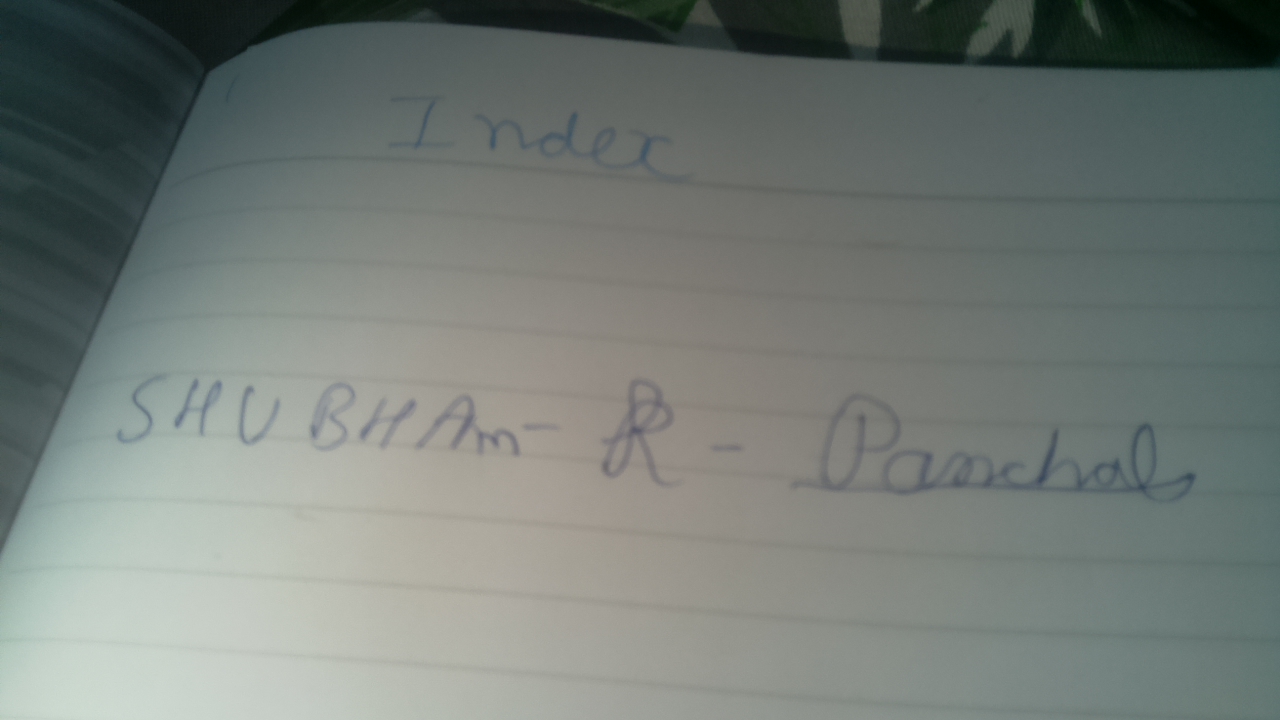 Index
SHUBHAm - R - Panchal